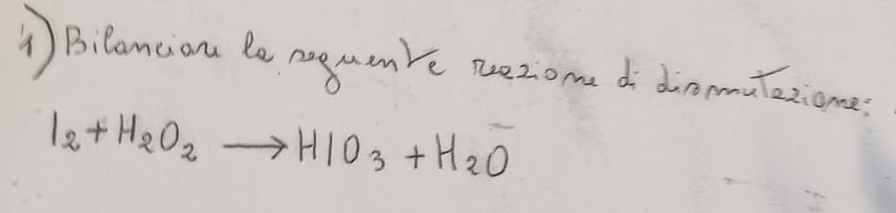 1) Bilanciare la seguente reazione di dismutazione:
I2 + H2O2 → HIO3 + H2O